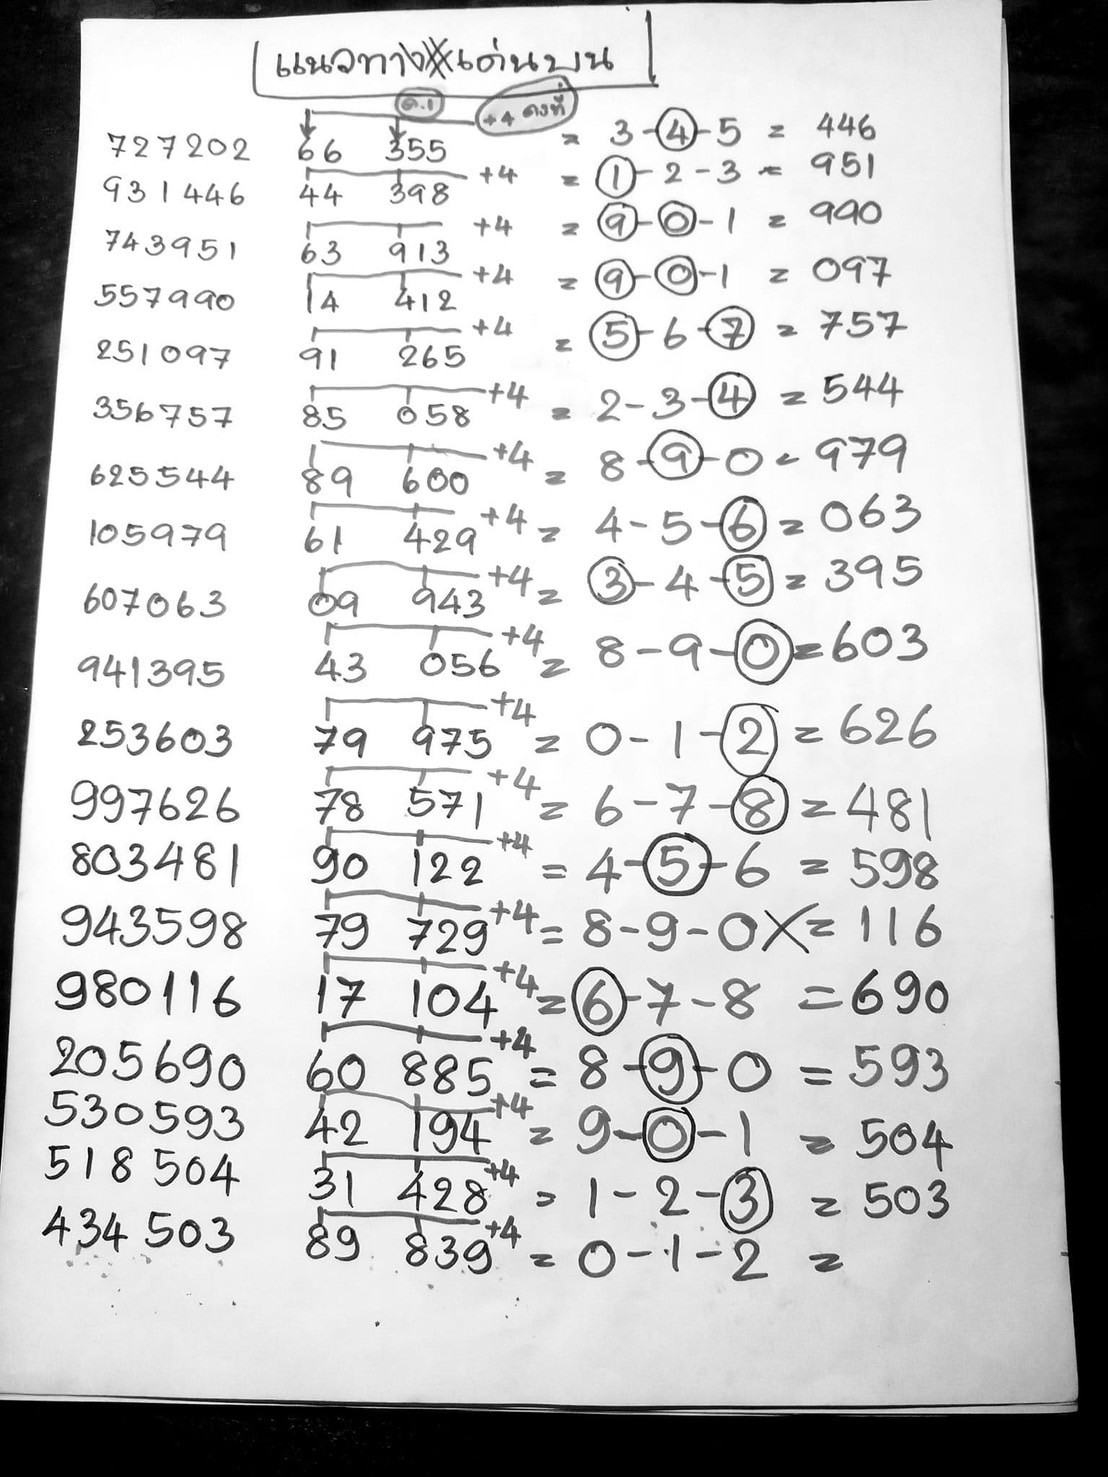 แนวทางเด่นบน
ต.1 +4 คงที่
727202 66 355 = 3-4-5 = 446
931446 44 398 +4 = 1-2-3 = 951
743951 63 913 +4 = 9-0-1 = 990
557990 14 412 +4 = 9-0-1 = 097
251097 91 265 +4 = 5-6-7 = 757
356757 85 058 +4 = 2-3-4 = 544
625544 89 600 +4 = 8-9-0 = 979
105979 61 429 +4 = 4-5-6 = 063
607063 09 943 +4 = 3-4-5 = 395
941395 43 056 +4 = 8-9-0 = 603
253603 79 975 +4 = 0-1-2 = 626
997626 78 571 +4 = 6-7-8 = 481
803481 90 122 +4 = 4-5-6 = 598
943598 79 729 +4 = 8-9-0 X = 116
980116 17 104 +4 = 6-7-8 = 690
205690 60 885 +4 = 8-9-0 = 593
530593 42 194 +4 = 9-0-1 = 504
518504 31 428 +4 = 1-2-3 = 503
434503 89 839 +4 = 0-1-2 =